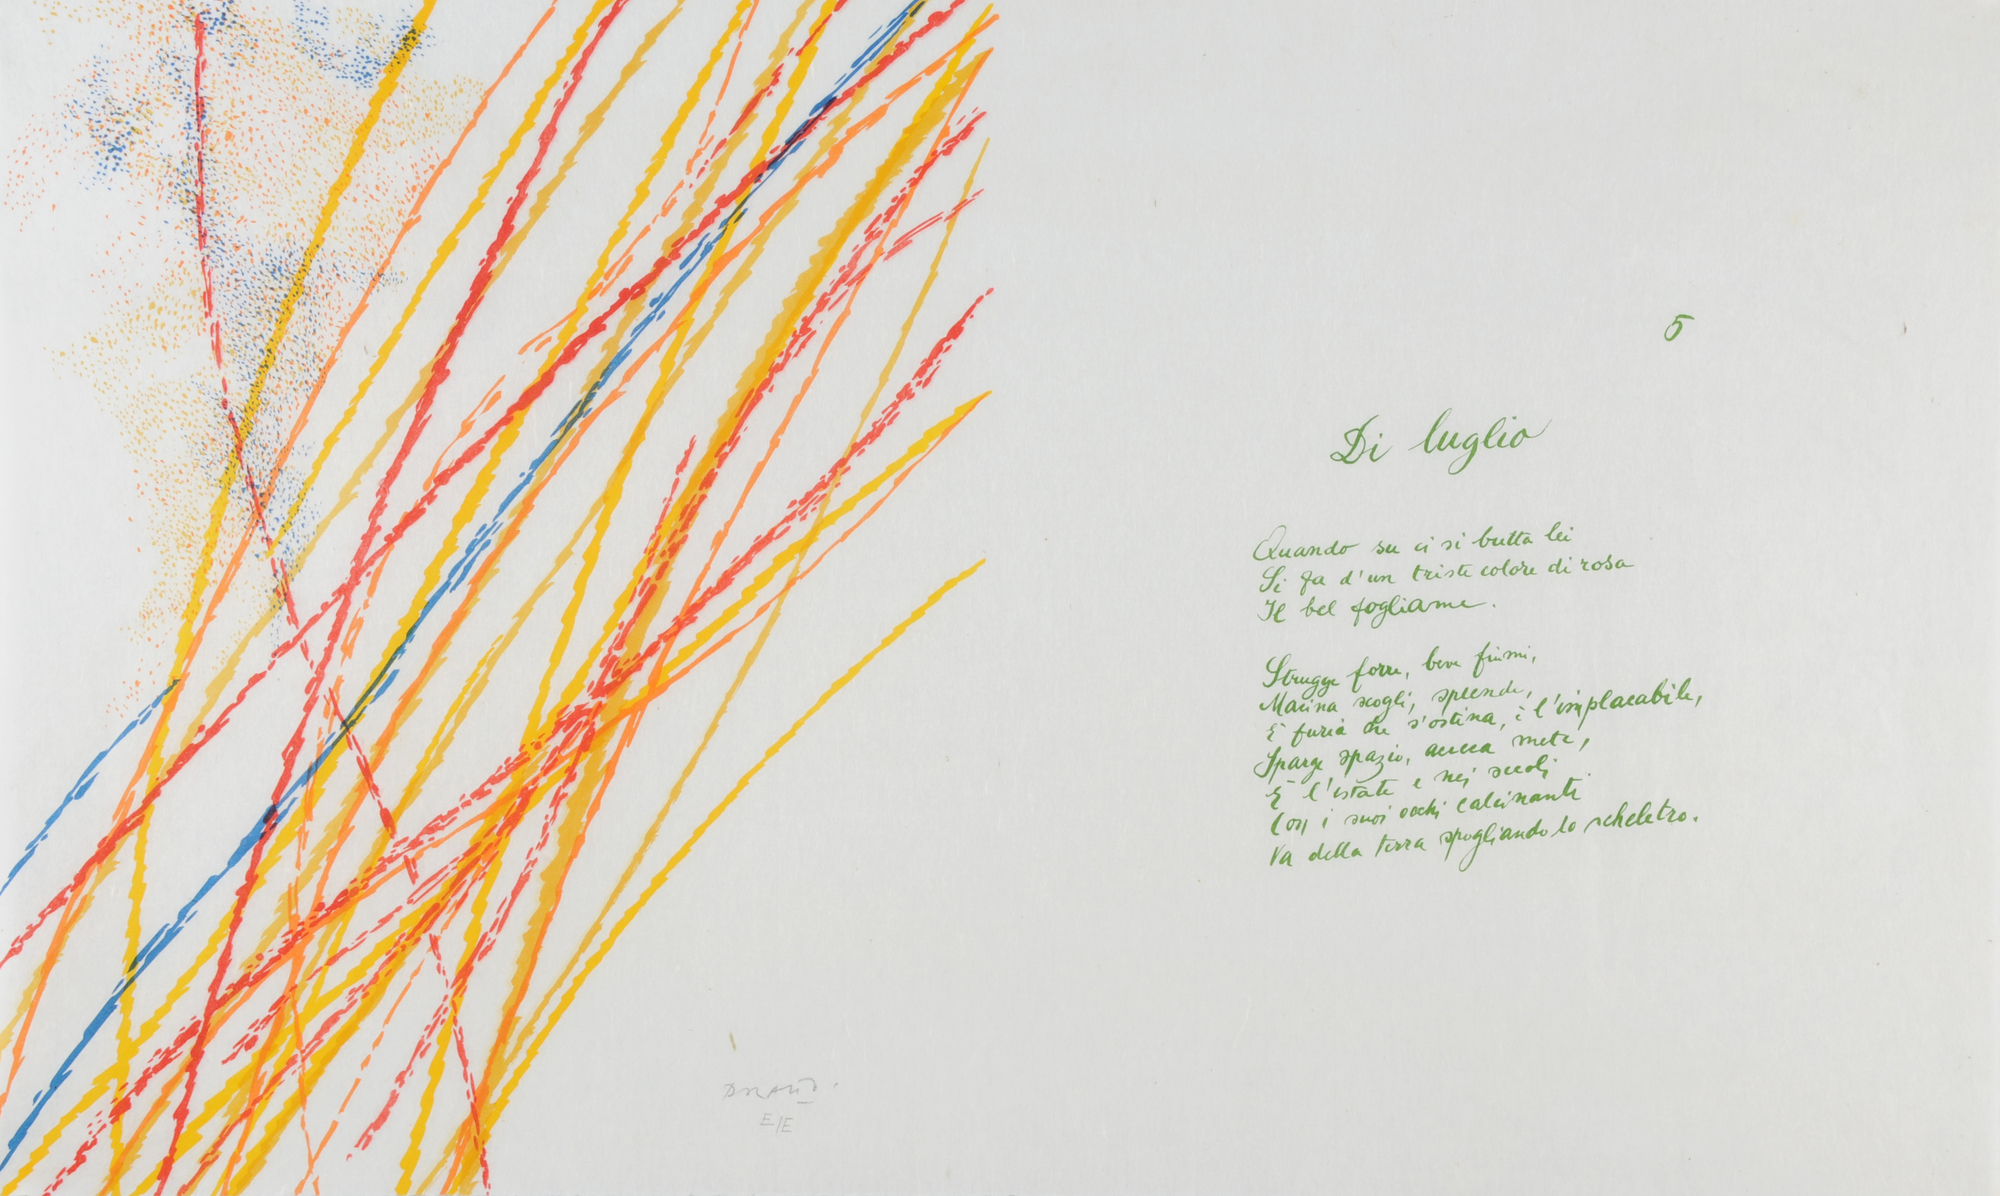 5
Di luglio
Quando su ci si butta lei
Si fa d'un triste colore di rosa
Il bel fogliame.
Strugge forre, beve fiumi,
Macina scogli, splende,
È furia che s'ostina, è l'implacabile,
Sparge spazio, acceca mete,
È l'estate e nei secoli
Con i suoi occhi calcinanti
Va della terra spogliando lo scheletro.
DORAZIO.
E/E